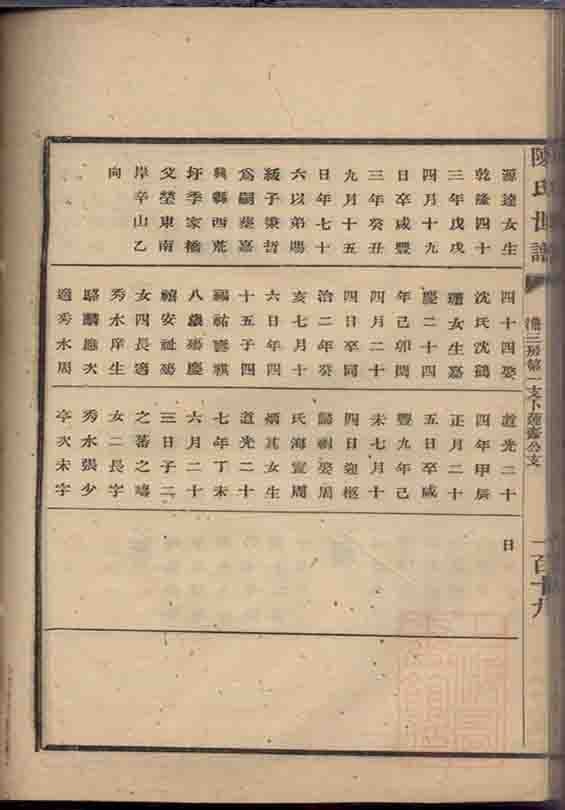 陳氏世譜
三房第一支下蓮齋公支
一百十九
源達女生
乾隆四十
三年戊戌
四月十九
日卒咸豐
三年癸丑
九月十五
日年七十
六以弟賜
綬子秉哲
爲嗣葬嘉
興縣西荒
圩季家橋
父塋東南
岸辛山乙
向
四十四娶
沈氏沈鶴
珊女生嘉
慶二十四
年己卯閏
四月二十
四日卒同
治二年癸
亥七月十
六日年四
十五子四
福祐寶祺
八歲殤慶
禧安祉殤
女四長適
秀水庠生
駱麟應次
適秀水周
道光二十
四年甲辰
正月二十
五日卒咸
豐九年己
未七月十
四日迎柩
歸祔娶周
氏海寧周
炳其女生
道光二十
七年丁未
六月二十
三日子二
之蕃之
女二長字
秀水張少
亭次未字
日